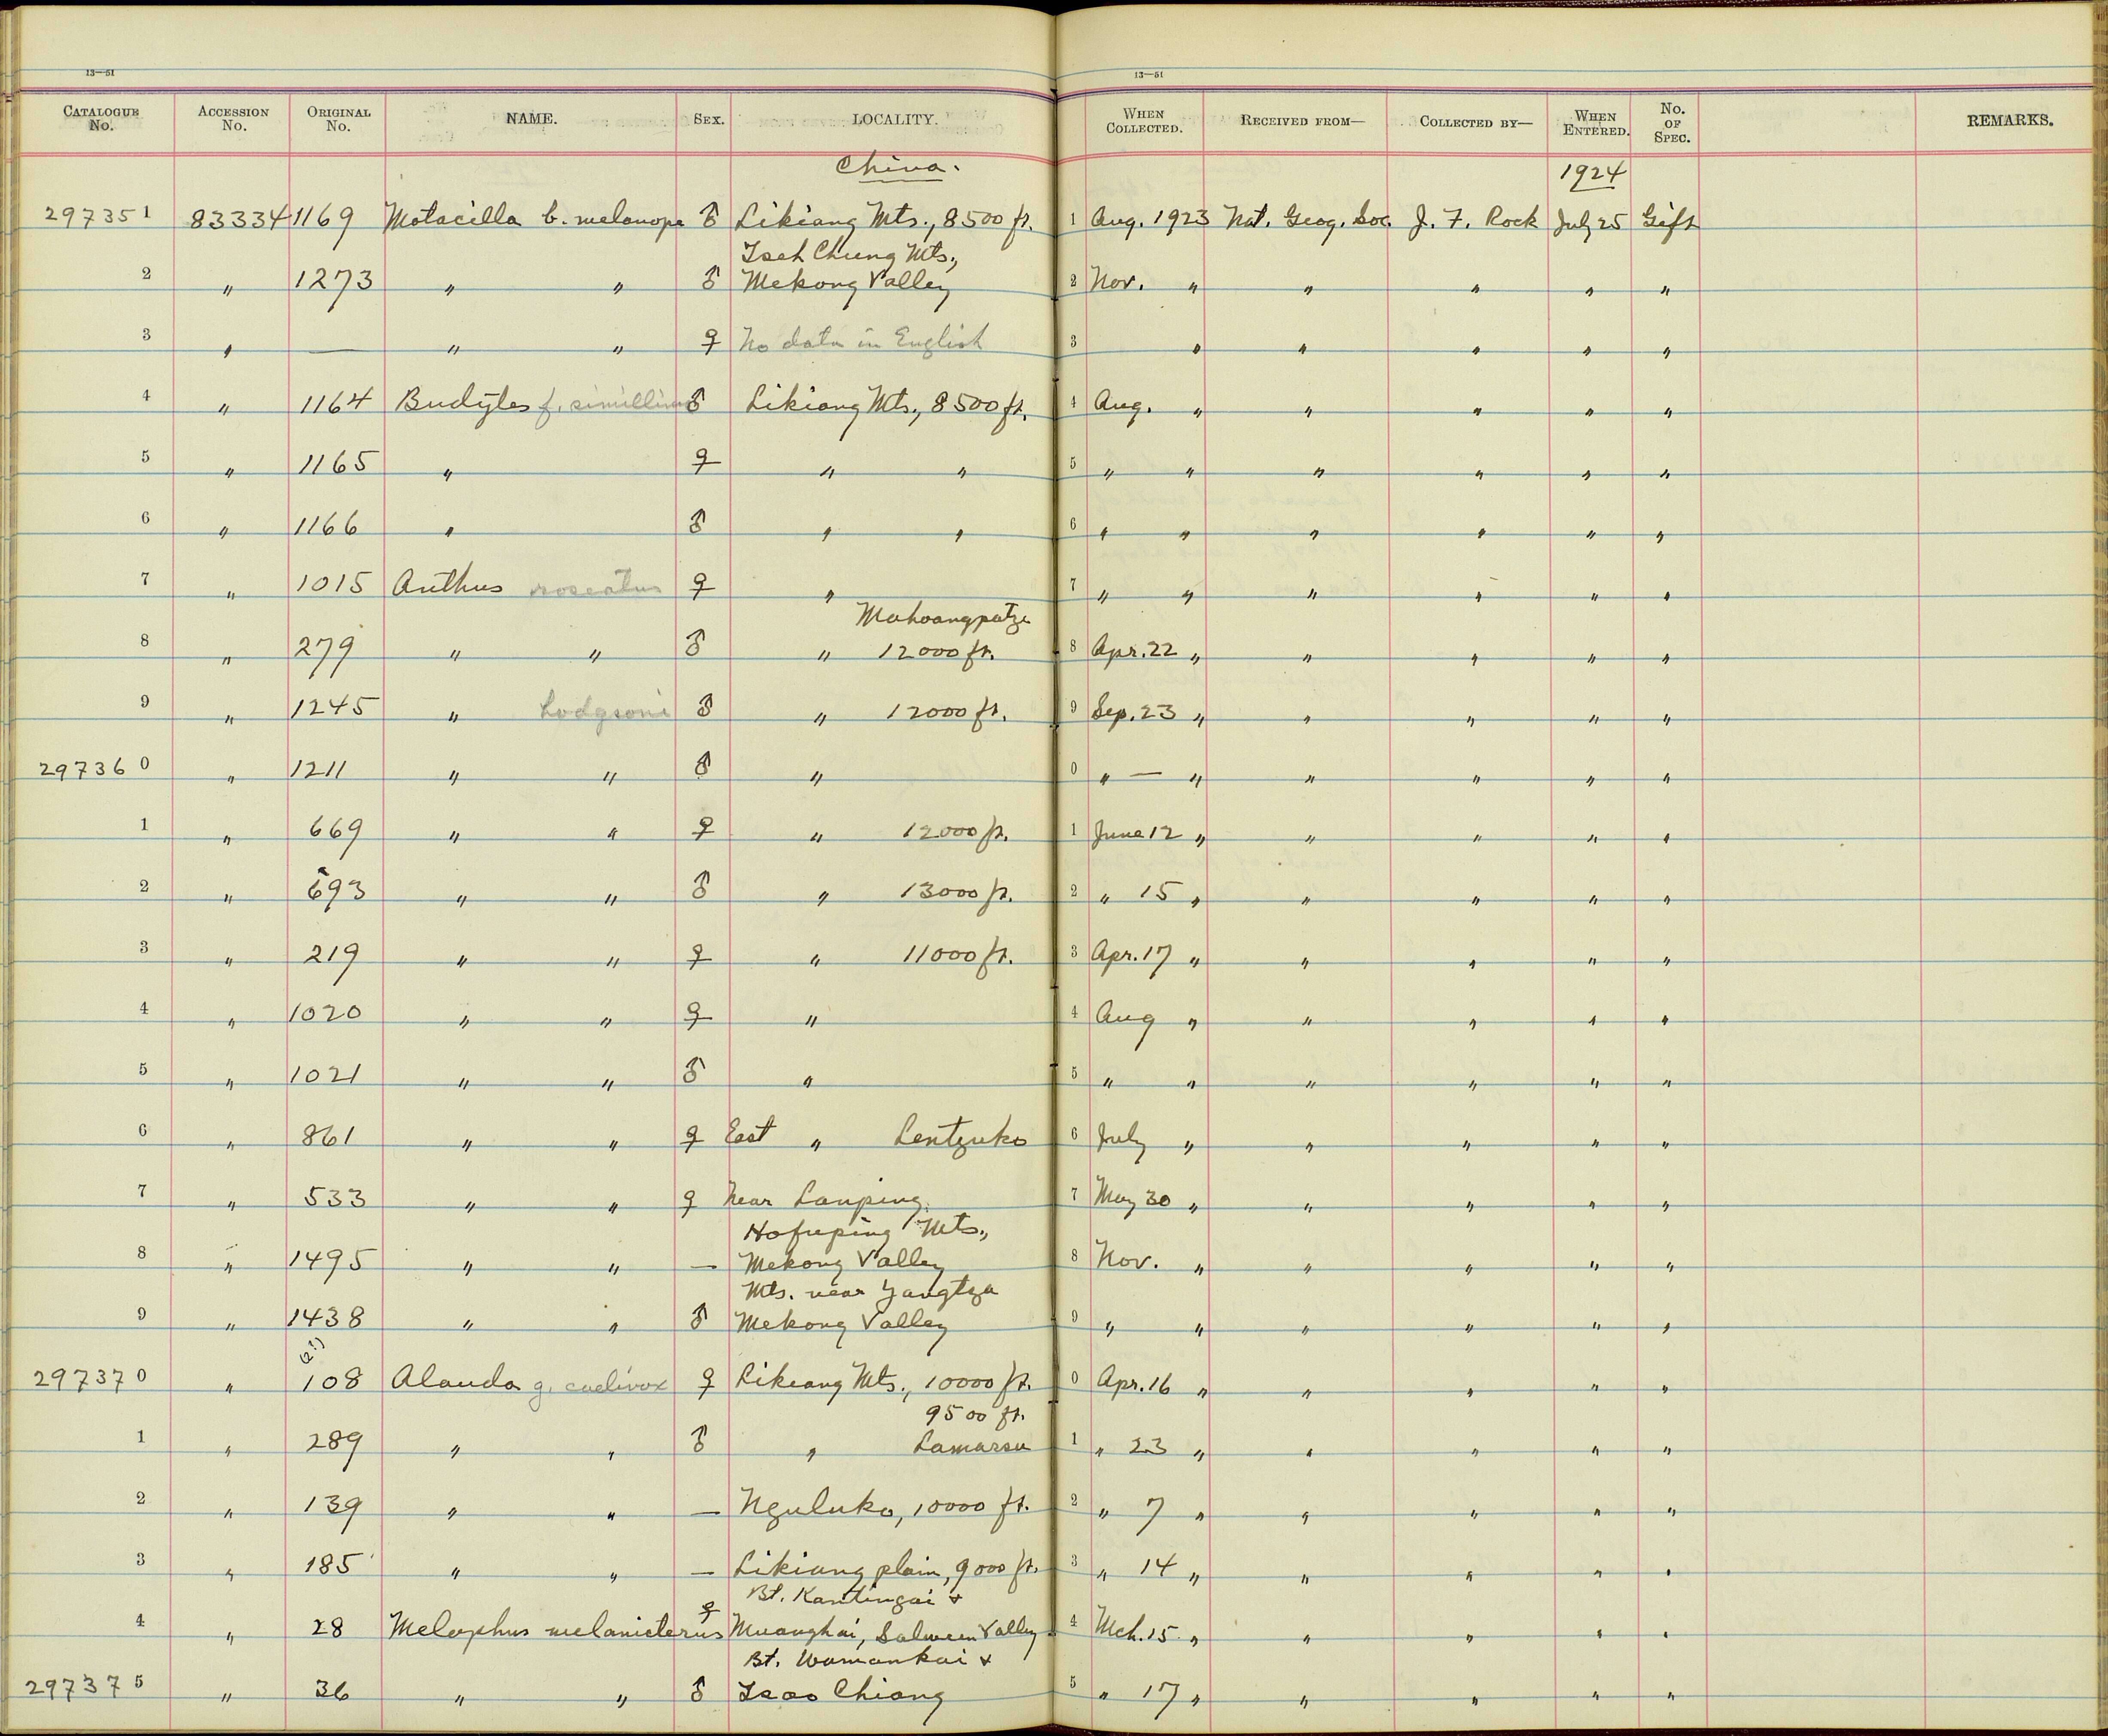 13—51 13—51
CATALOGUE No. ACCESSION No. ORIGINAL No. NAME. SEX. LOCALITY. WHEN COLLECTED. RECEIVED FROM— COLLECTED BY— WHEN ENTERED. No. OF SPEC. REMARKS.
China. 1924
297351 83334 1169 Motacilla b. melanope ♂ Likiang Mts., 8500 ft. 1 Aug. 1923 Nat. Geog. Soc. J. F. Rock July 25 Gift
Tseh Chung Mts.,
2 " 1273 " " ♂ Mekong Valley 2 Nov. " " " " "
3 " — " " ♀ No data in English 3 " " " " "
4 " 1164 Budytes f. simillima ♂ Likiang Mts., 8500 ft. 4 Aug. " " " " "
5 " 1165 " ♀ " " 5 " " " " " "
6 " 1166 " ♂ " " 6 " " " " " "
7 " 1015 Anthus roseatus ♀ " 7 " " " " " "
Mahoangpatze
8 " 279 " " ♂ " 12000 ft. 8 Apr. 22 " " " " "
9 " 1245 " hodgsoni ♂ " 12000 ft. 9 Sep. 23 " " " " "
297360 " 1211 " " ♂ " 0 " — " " " " "
1 " 669 " " ♀ " 12000 ft. 1 June 12 " " " " "
2 " 693 " " ♂ " 13000 ft. 2 " 15 " " " " "
3 " 219 " " ♀ " 11000 ft. 3 Apr. 17 " " " " "
4 " 1020 " " ♀ " 4 Aug " " " " "
5 " 1021 " " ♂ " 5 " " " " " "
6 " 861 " " ♀ East " Lentzuko 6 July " " " " "
7 " 533 " " ♀ Near Lanping. 7 May 30 " " " " "
Hofuping Mts.,
8 " 1495 " " — Mekong Valley 8 Nov. " " " " "
Mts. near Yangtza
9 " 1438 " " ♂ Mekong Valley 9 " " " " " "
(2?)
297370 " 108 Alauda g. coelivox ♀ Likiang Mts., 10000 ft. 0 Apr. 16 " " " " "
9500 ft.
1 " 289 " " ♂ " Lamarsu 1 " 23 " " " " "
2 " 139 " " — Nguluko, 10000 ft. 2 " 7 " " " " "
3 " 185 " " — Likiang plain, 9000 ft. 3 " 14 " " " " "
Bt. Kantingai &
4 " 28 Melophus melanicterus ♀ Muanghai, Salween Valley 4 Mch. 15 " " " " "
Bt. Wamankai &
297375 " 36 " " ♂ Tsao Chiang 5 " 17 " " " " "